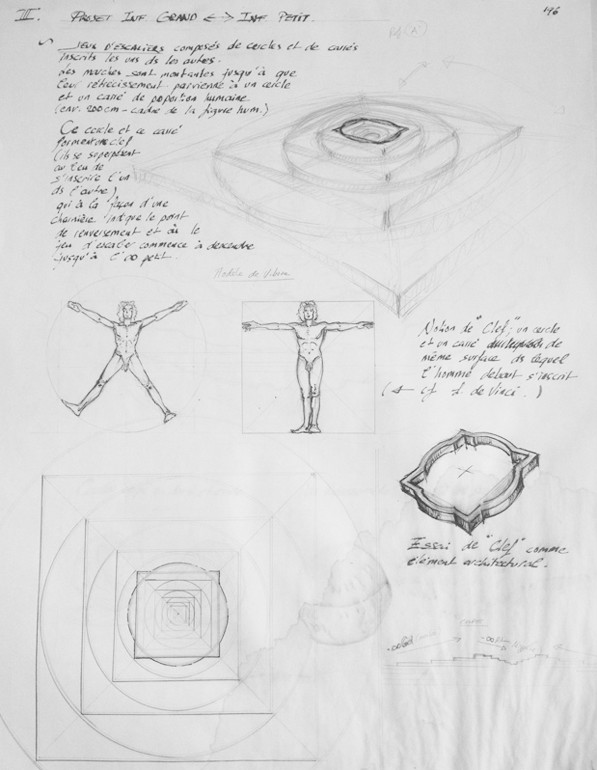 III. PROJET INF GRAND <-> INF PETIT.
196
JEUX D'ESCALIERS composés de cercles et de carrés
inscrits les uns ds les autres.
Les marches sont montantes jusqu'à que
leur rétrécissement parvienne à un cercle
et un carré de proportion humaine.
(env. 200cm - cadre de la figure hum.)
Ce cercle et ce carré
forment une clef
(ils se superposent
au lieu de
s'inscrire l'un
ds l'autre)
qui à la façon d'une
charnière indique le point
de renversement et où le
jeu d'escalier commence à descendre
jusqu'à l'∞ petit.
Modèle de
Notion de "Clef", un cercle
et un carré de
même surface ds lequel
l'homme debout s'inscrit
( cf L. de Vinci. )
Essai de "Clef" comme
élément architectural.